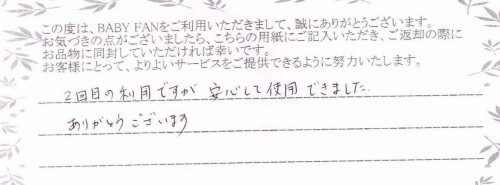 この度は、BABY FANをご利用いただきまして、誠にありがとうございます。
お気づきの点がございましたら、こちらの用紙にご記入いただき、ご返却の際に
お品物に同封していただければ幸いです。
お客様にとって、よりよいサービスをご提供できるように努力いたします。
2回目の利用ですが 安心して使用できました。
ありがとうございます